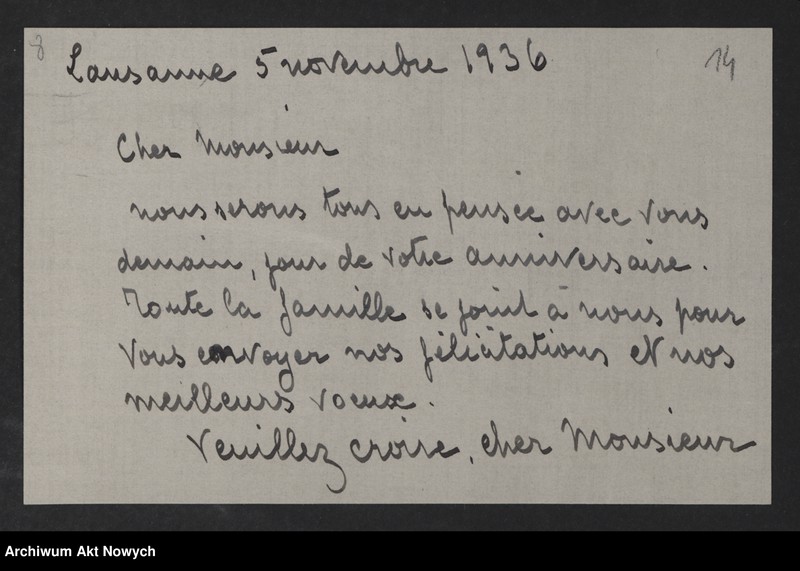 8
Lausanne 5 novembre 1936
14
Cher Monsieur
nous serons tous en pensée avec vous
demain, jour de votre anniversaire.
Toute la famille se joint à nous pour
vous envoyer nos félicitations et nos
meilleurs voeux.
Veuillez croire, cher Monsieur
Archiwum Akt Nowych